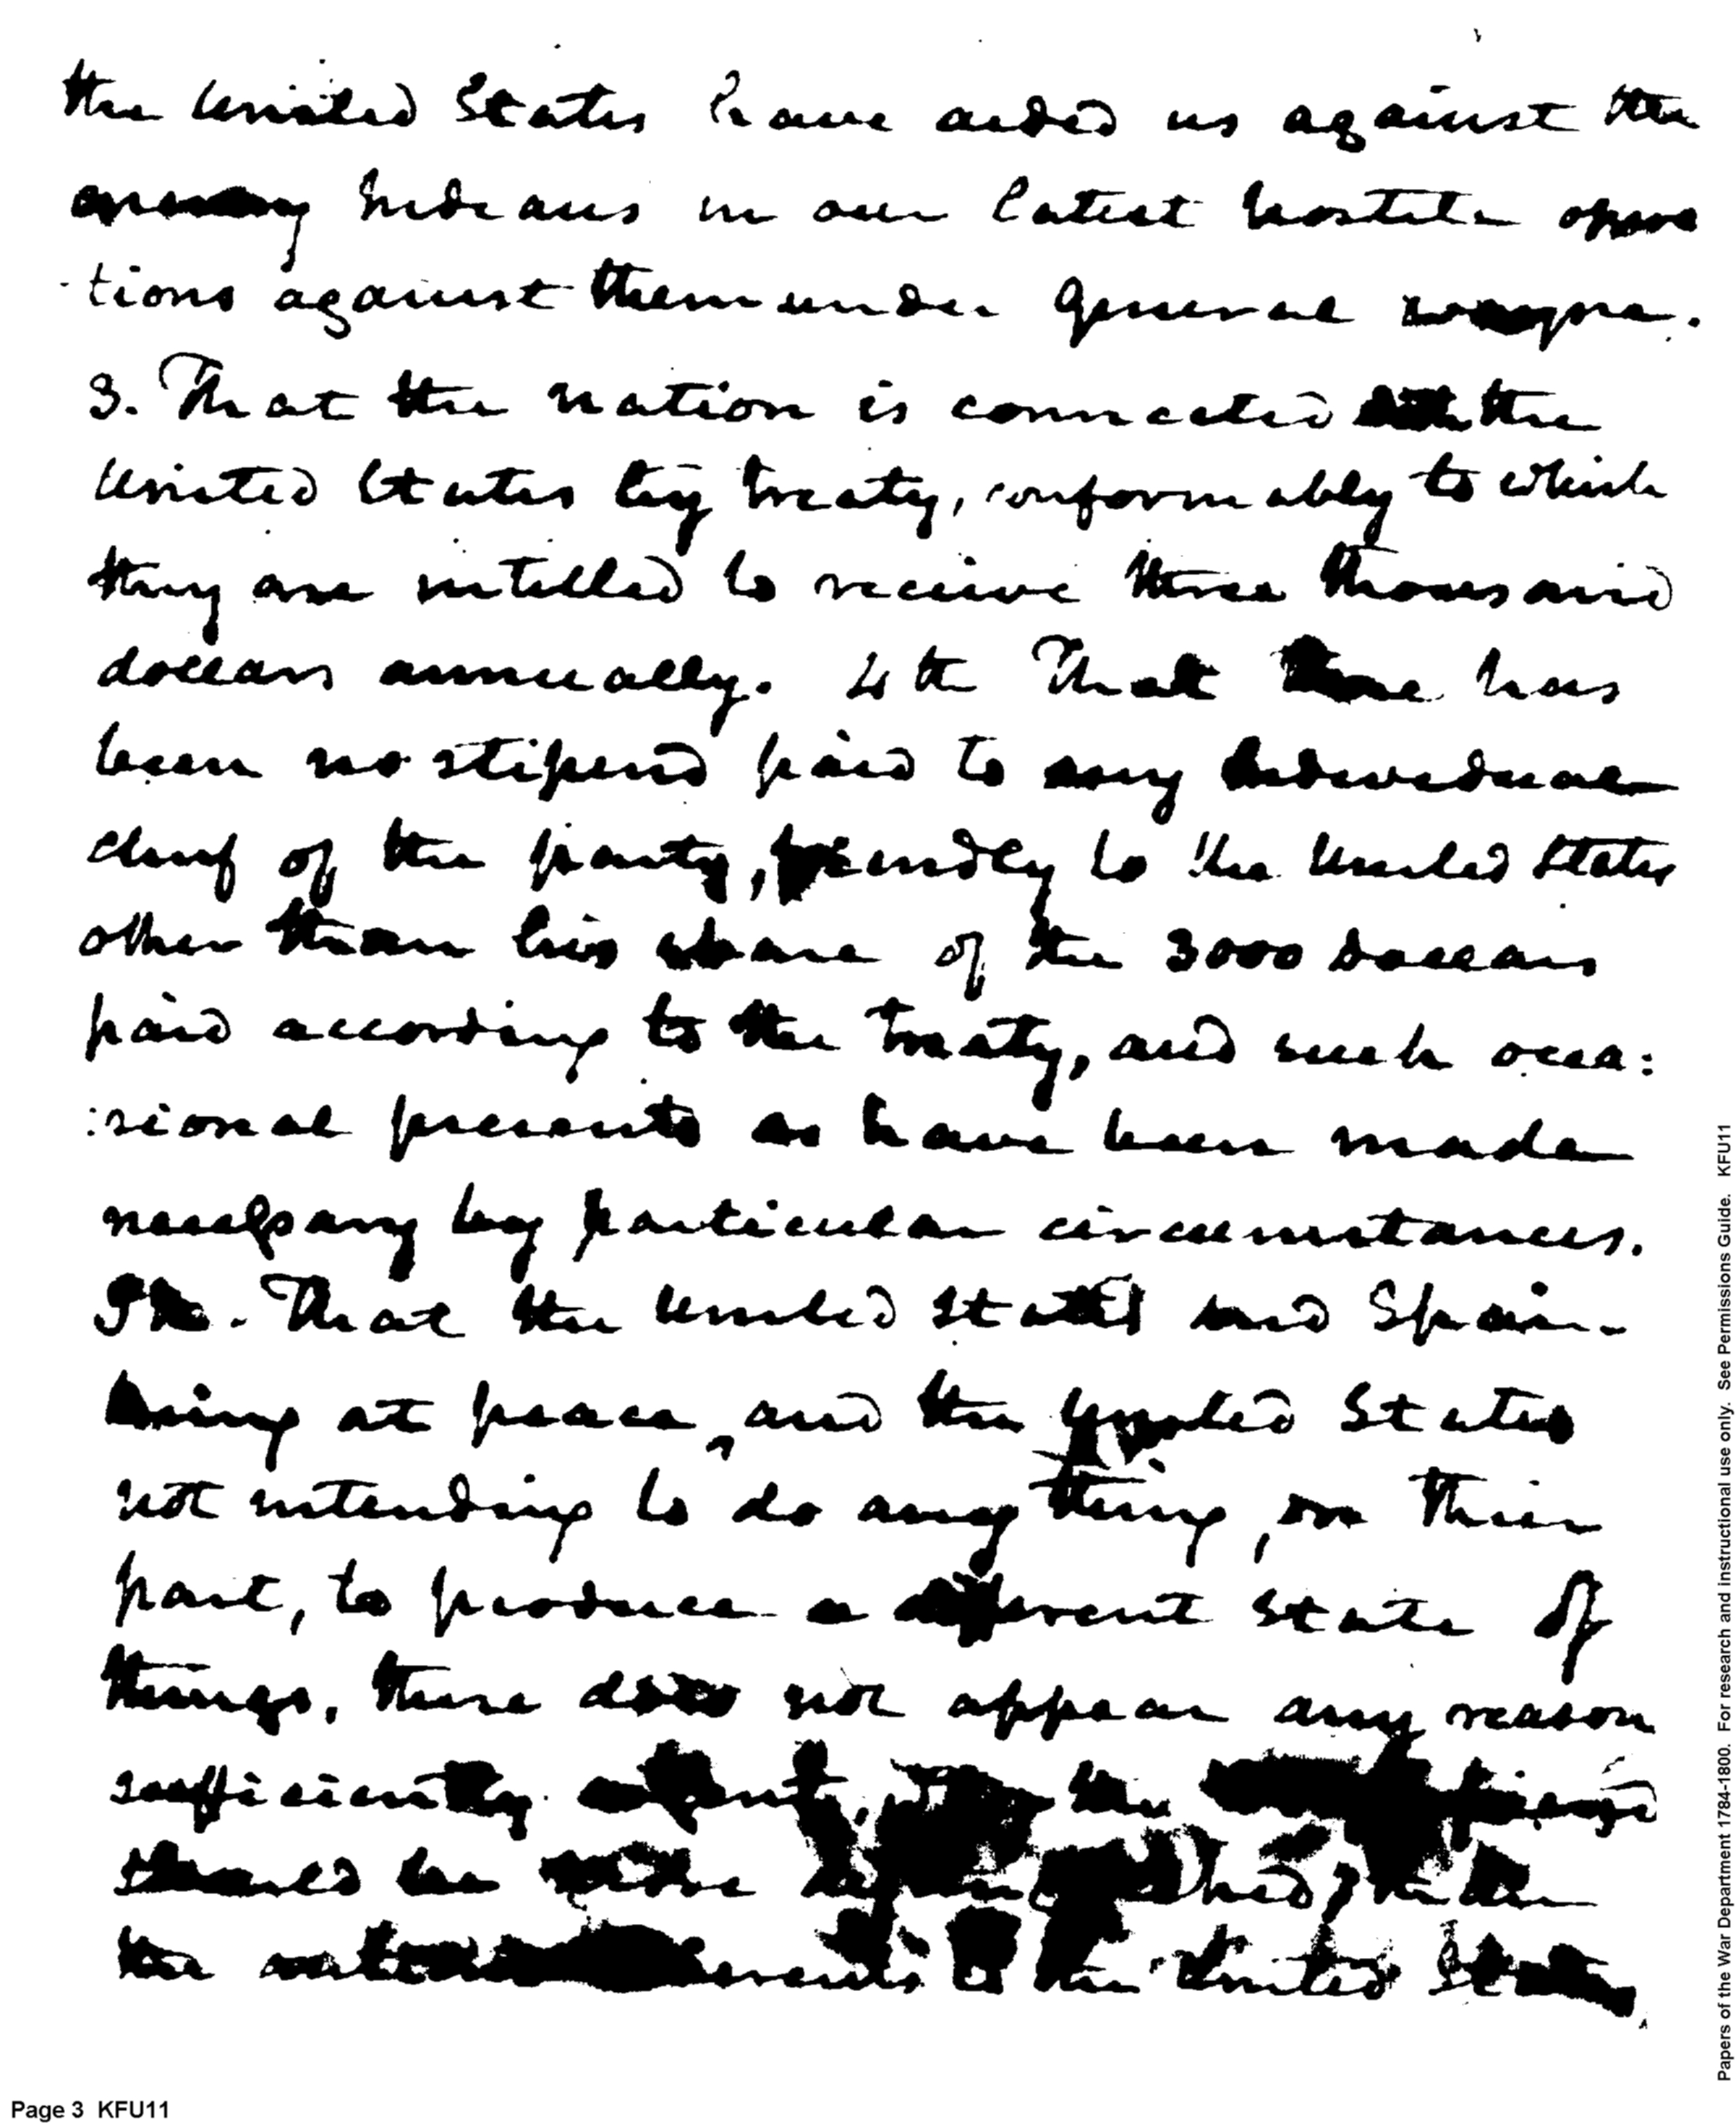 the United States have aided us against the
enemy Indians in our latest hostile opera
-tions against them under General Wayne.
3. That the nation is connected with the
United States by Treaty, conformably to which
they are intitled to receive three thousand
dollars annually. 4th That there has
been no stipend paid to any individual
chief of the party, friendly to the United States
other than his share of the 3000 dollars
paid according to the Treaty, and such occa:
:sional presents as have been made
necessary by particular circumstances.
5th. That the United States and Spain
being at peace, and the United States
not intending to do any thing, on their
part, to produce a different state of
things, there does not appear any reason
sufficiently the
should be
the of the United States
Page 3 KFU11
Papers of the War Department 1784-1800. For research and instructional use only. See Permissions Guide. KFU11